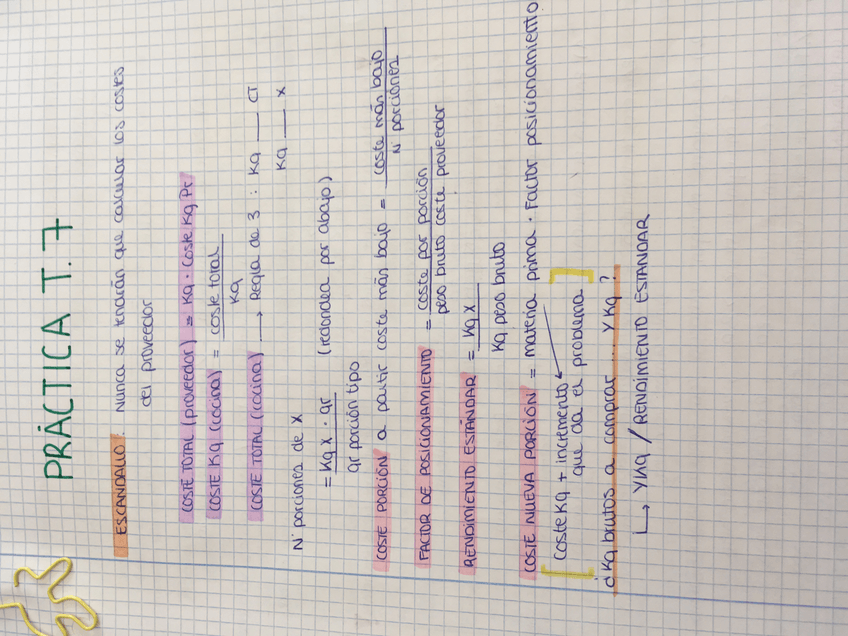 PRÁCTICA T. 7
ESCANDALLO: Nunca se tendrán que calcular los costes
del proveedor
COSTE TOTAL (proveedor) = Kg · Coste Kg Pr
COSTE Kg (cocina) = coste total / Kg
COSTE TOTAL (cocina) → Regla de 3 : Kg __ CT
Kg __ X
Nº porciones de X
= Kg X · gr / gr porción tipo (redondea por abajo)
COSTE PORCIÓN a partir coste más bajo = coste más bajo / Nº porciones
FACTOR DE POSICIONAMIENTO = coste por porción / peso bruto coste proveedor
RENDIMIENTO ESTÁNDAR = Kg X / Kg peso bruto
COSTE NUEVA PORCIÓN = materia prima · Factor posicionamiento
[coste Kg + incremento
que da el problema]
¿Kg brutos a comprar ... Y Kg?
↳ Y Kg / RENDIMIENTO ESTÁNDAR